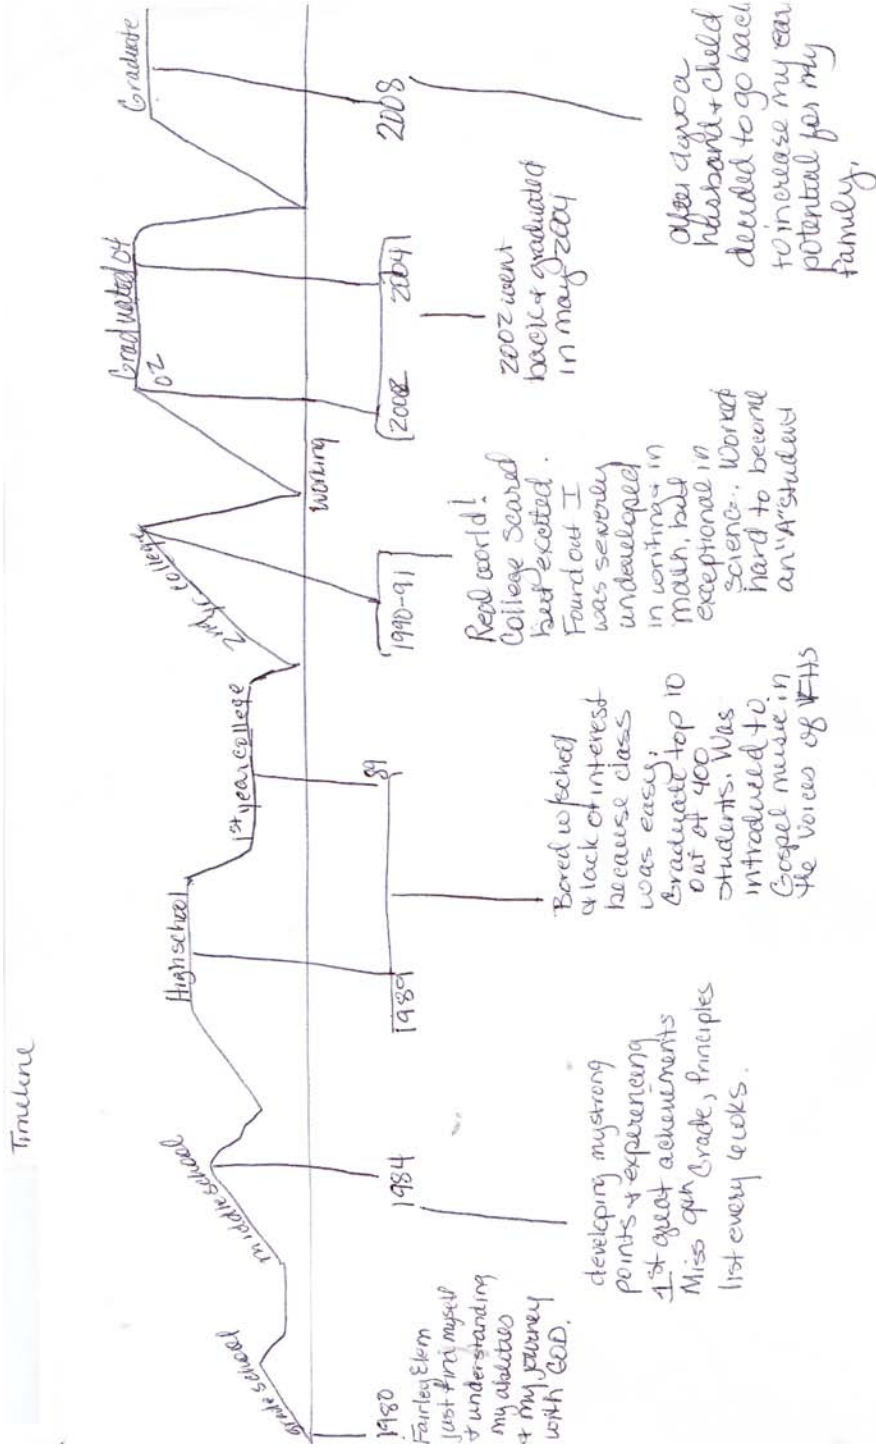 Timeline
grade school
middle school
Highschool
1st year college
2nd yr college
working
Graduated 04
02
Graduate
1980
Fairley Elem
just find myself
+ understanding
my abilities
+ my journey
with GOD.
1984
developing my strong
points + experiencing
1st great achievements
Miss 9th Grade, Principles
list every 6wks.
1989
89
Bored w/school
+ lack of interest
because class
was easy.
Graduate top 10
out of 400
students. Was
introduced to
Gospel music in
the Voices of FHS
1990-91
Real world!
College scared
but excited.
Found out I
was severly
undeveloped
in writing + in
math, but
exceptional in
science. Worked
hard to become
an "A" student
2002
2004
2002 went
back + graduated
in may 2004
2008
husband + child
decided to go back
to increase my ear
potential for my
family.